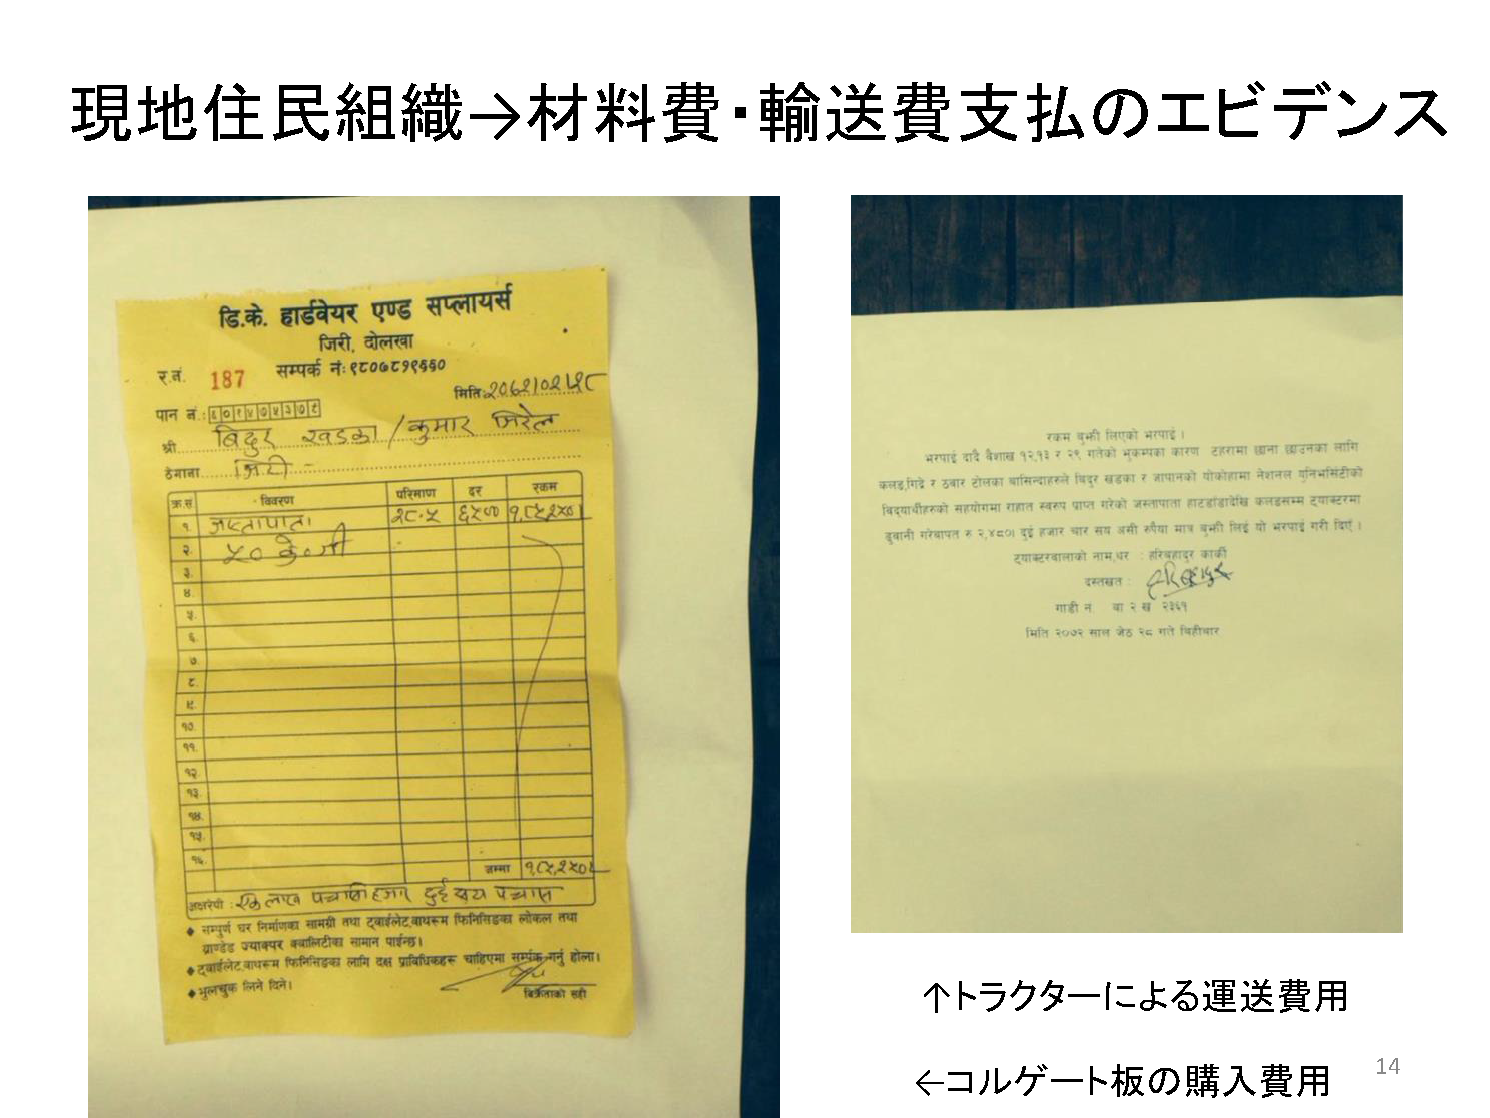 現地住民組織→材料費・輸送費支払のエビデンス
डि.के. हार्डवेयर एण्ड सप्लायर्स
जिरी, दोलखा
र.नं. 187 सम्पर्क नं:९८०७८१९५५०
मिति:
पान नं.:
श्री बिदुर खडका / कुमार जिरेल
ठेगाना जिरी -
क्र.सं विवरण परिमाण दर रकम
१. जस्तापाता २८.५ ६५०० १,८५,२५०।
२. ५० के.जी
३.
४.
५.
६.
७.
८.
९.
१०.
११.
१२.
१३.
१४.
१५.
१६.
जम्मा १,८५,२५०।
अक्षरेपी : एक लाख पच्चासी हजार दुई सय पच्चास
◆ सम्पुर्ण घर निर्माणका सामग्री तथा ट्वाईलेट,बाथरूम फिनिसिङका लोकल तथा
ब्राण्डेड ज्याक्पर क्वालिटीका सामान पाईन्छ।
◆ ट्वाईलेट,बाथरूम फिनिसिङका लागि दक्ष प्राविधिकहरू चाहिएमा सर्म्पक गर्नु होला।
◆ भुलचुक लिने दिने।
बिक्रेताको सही
रकम बुझी लिएको भरपाई ।
भरपाई दादै बैशाख १२,१३ र २९ गतेको भुकम्पका कारण टहरामा छाना छाउनका लागि
कलड,गिद्रे र ठबार टोलका बासिन्दाहरुले बिदुर खडका र जापानको योकोहामा नेशनल युनिभर्सिटीको
बिद्यार्थीहरुको सहयोगमा राहात स्वरुप प्राप्त गरेको जस्तापाता हाटडाँडादेखि कलडसम्म ट्याक्टरमा
ढुवानी गरेबापत रु २,४८०। दुई हजार चार सय असी रुपैया मात्र बुझी लिई यो भरपाई गरी दिएँ ।
ट्याक्टरवालाको नाम,थर : हरिबहादुर कार्की
दस्तखत : हरिबहादुर
गाडी नं बा २ ख २३६१
मिति २०७२ साल जेठ २८ गते बिहीबार
↑トラクターによる運送費用
←コルゲート板の購入費用
14